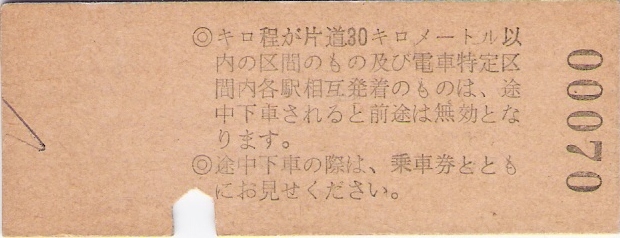 ◎キロ程が片道30キロメートル以
内の区間のもの及び電車特定区
間内各駅相互発着のものは、途
中下車されると前途は無効とな
ります。
◎途中下車の際は、乗車券ととも
にお見せください。
00070